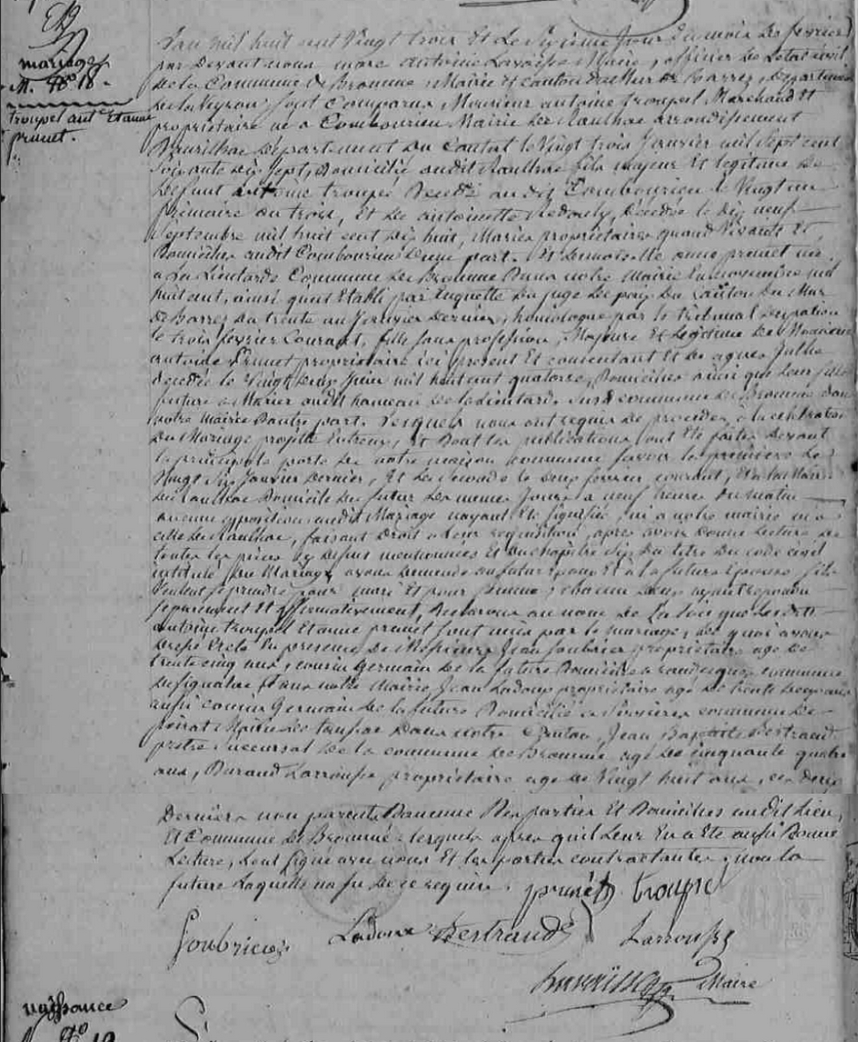 mariage
N. 18.
troupel ant. Et anne
prunet.
L'an mil huit cent vingt trois Et Le Sixieme jour du mois de fevrier
par Devant nous marc antoine Maire, officier de Letat civil
de la Commune de Bromme, Mairie Et canton de Mur de Barrez, Departement
de laveyron, sont Comparus, Monsieur antoine troupel Marchand Et
proprietaire né a Combourieu Mairie de Raulhac arrondissement
Daurilhac Departement Du Cantal le vingt trois Janvier mil sept cent
Soixante Dix Sept, Domicilié audit Raulhac fils Majeur Et legitime de
Defunt antoine troupel Decedé au dit Combourieu le vingt un
frimaire an trois, Et de antoinette Decedée le Dix neuf
Septembre mil huit cent Dix huit, Mariés proprietaires quand vivants Et
Domiciliés audit Combourieu Dune part. Et Demoiselle anne prunet née
a La Lientarde Commune de Bromme Dans notre Mairie En mil
huit cent, ainsi quest Etabli par Enquette Du juge de paix Du Canton Du Mur
de Barrez Du trente un Janvier Dernier, homologué par le tribunal
le trois fevrier Courant, fille sans profession, Majeure Et Legitime de Monsieur
antoine Prunet proprietaire ici present Et consentant Et de agnes
decedée le vingt Deux Juin mil huit cent quatorze, Domiciliés ainsi que Leur fille
future a Marier audit hameau de la commune de Bromme Dans
notre Mairie Dautre part. Lesquels nous ont requis de proceder a la celebration
Du Mariage projetté Entreux, Et Dont les publications ont Eté faites Devant
la principale porte de notre maison Commune savoir la premiere Le
vingt Six Janvier Dernier, Et la seconde le Deux fevrier courant, Et a la Mairie
de Raulhac Domicile du futur Les memes Jours a neuf heures Du matin
aucune opposition audit Mariage nayant Eté signifiée, ni a notre mairie ni a
celle de Raulhac, faisant Droit a Leur requisition, apres avoir Donné Lecture de
toutes les pieces cy Dessus mentionnées Et Du chapitre six Du titre Du code civil
intitulé Du Mariage, avons Demandé au futur Epoux Et à la future Epouse s'ils
veulent se prendre pour mari Et pour femme, chacun Deux ayant repondu
separement Et affirmativement, Declarons au nom de La loi que les dits
antoine troupel Et anne prunet sont unis par le mariage, De quoi avons
Dressé acte En presence de Jean Joubrier proprietaire agé de
trente cinq ans, cousin Germain de la future Domicilié a commune
Dans notre Mairie, Jean Ladoux proprietaire agé de trente
aussi cousin Germain de la future Domicilié a commune de
Mairie de Dans notre Canton, Jean Baptiste Bertrand
pretre Succursal de la commune de Bromme agé de cinquante quatre
ans, Durand Larroussé proprietaire agé de vingt huit ans, ces Deux
Derniers non parents Daucune Des parties Et Domiciliés audit Lieu,
Et Commune de Bromme: lesquels apres quil Leur En a Eté aussi Donné
Lecture, Lont signé avec nous Et les parties contractantes, non la
future Laquelle na su de ce requise. prunet troupel
Joubrier Ladoux Bertrand Larroussé
Maire
naissance
N. 19